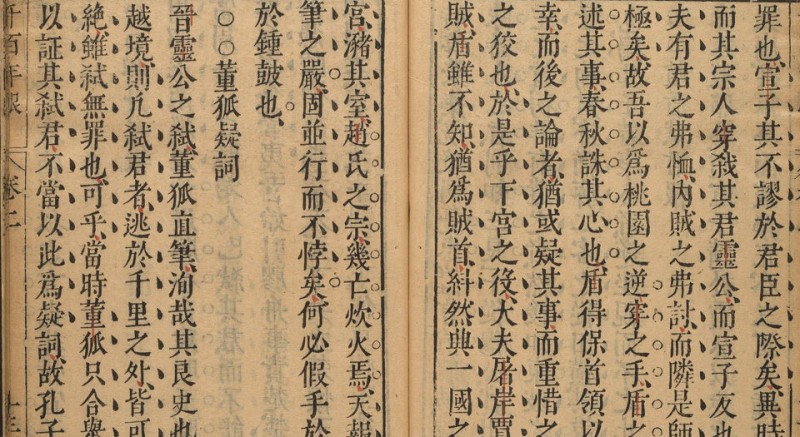 罪也宣子其不謬於君臣之際矣異時
而其宗人穿弒其君靈公而宣子友也
夫有君之弗恤內賊之弗討而隣是師
極矣故吾以爲桃園之逆穿之手盾之
述其事春秋誅其心也盾得保首領以
幸而後之論者猶或疑其事而重惜之
之狡也於是乎下宮之役大夫屠岸賈
賊盾雖不知猶爲賊首然典一國之
宮瀦其室趙氏之宗幾亡炊火焉天報
筆之嚴固並行而不悖矣何必假手於
於鍾鼓也
○○董狐疑詞
晉靈公之弒董狐直筆洵哉其良史也
越境則凡弒君者逃於千里之外皆可
絶雖弒無罪也可乎當時董狐只合
以証其弒君不當以此爲疑詞故孔子
千百年眼 卷二